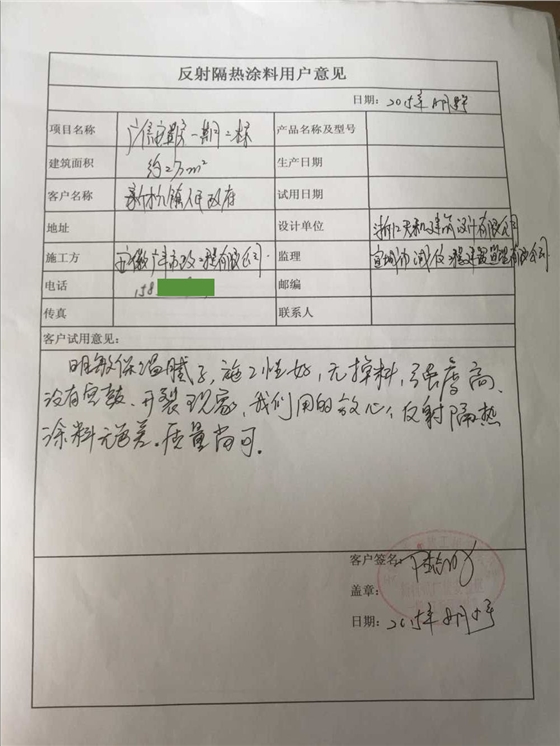 反射隔热涂料用户意见
日期：2015年8月5号
项目名称 一期二标 产品名称及型号
建筑面积 约2万m² 生产日期
客户名称 新杭镇人民政府 试用日期
地址 设计单位 浙江天和建筑设计有限公司
施工方 安徽广丰市政工程有限公司 监理 宣城市建设监理有限公司
电话 158 邮编
传真 联系人
客户试用意见：
明敏保温腻子，施工性好，无掉料，强度高、
没有空鼓、开裂现象，我们用的放心，反射隔热
涂料无色差.质量尚可.
客户签名：
盖章：
日期：2015年8月5号